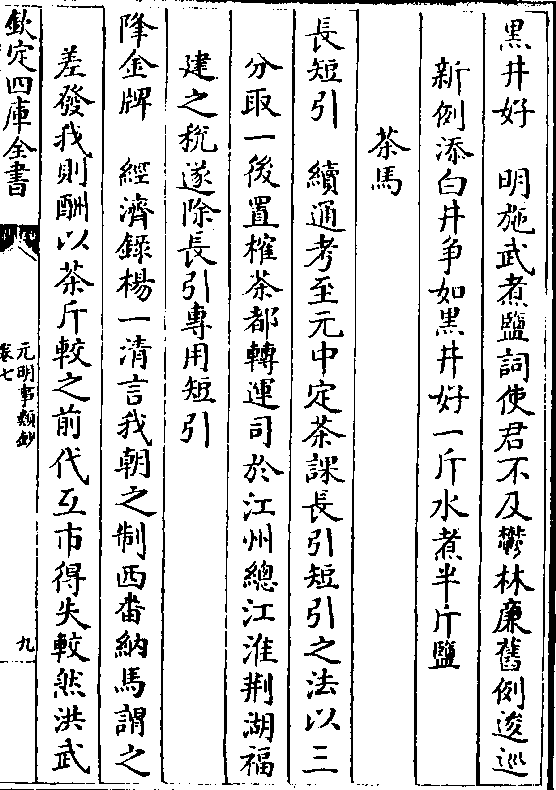 黒井好　明施武煮鹽詞使君不及鬱林廉舊例逡巡
新例添白井争如黒井好一斤水煮半斤鹽
茶馬
長短引　續通考至元中定茶課長引短引之法以三
分取一後置榷茶都轉運司於江州總江淮荆湖福
建之稅遂除長引專用短引
降金牌　經濟錄楊一清言我朝之制西畨納馬謂之
差發我則酬以茶斤較之前代互市得失較然洪武
欽定四庫全書
元明事類鈔
卷七
九